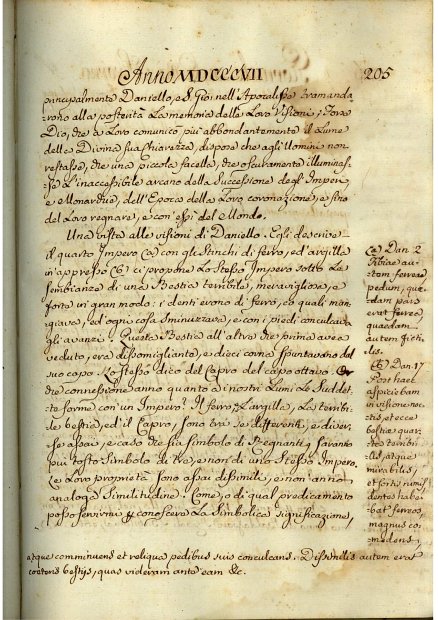 Anno MDCCCVII
205
principalmente Daniello, e S. Gio: nell'Apocalisse tramanda-
rono alla posterità la memoria delle Loro Visioni; Fora
Dio, che a Loro comunicò più abbondantemente il Lume
della Divina sua chiarezza, dispose che agli Uomini non
restasse, che una piccola facella, che oscuramente illumines-
se l'inaccessibile arcano della Successione degl'Imperi
e Monarchie, dell'Epoca della Loro coronazione, e fino
del Loro regnare, e con essi del Mondo.
Una vista alle visioni di Daniello. Egli descrive
il quarto Impero (a) con gli Stinchi di ferro, ed'argilla
in appresso (b) ci propone lo Stesso Impero sotto la
Sembianza di una Bestia terribile, meravigliosa, e
forte in gran modo: i denti erono di ferro, co quali man-
giava, ed'ogni cosa Sminuzzava, e con i piedi conculcava
gli avanzi. Questa Bestia all'altre che prima avea
veduto, era dissomigliante, e dieci corna spuntavano dal
suo capo. Lo stesso dico del Capro del capo ottavo. Or
che connessione anno quanto a i nostri Lumi le Suddet-
te forme con un'Impero? Il ferro, l'argilla, la terribi-
le bestia, ed il Capro, sono tra se differenti, e diver-
se assai, e caso che sia simbolo di Regnanti, saranno
più tosto Simbolo di tre, e non di uno Stesso Impero.
Le Loro proprietà sono assai dissimili, e non anno
analoga Similitudine. Come, o di qual predicamento
posso servirmi per conoscere la Simbolica significazione,
(a) Dan 2
Tibiae au-
tem ferreae
pedum, quæ-
dam pars
erat ferrea
quaedam
autem ficti-
lis.
(b) Dan. 17
Post haec
aspiciebam
in visione no-
ctis, et ecce
bestia quar-
ta terribi-
lis, atque
mirabilis,
et fortis nimis
dentes habe-
bat ferreos
magnos co-
medens,
atque comminuens et reliqua pedibus suis conculcans. Dissimilis autem erat
coeteris bestijs, quas videram ante eam &c.